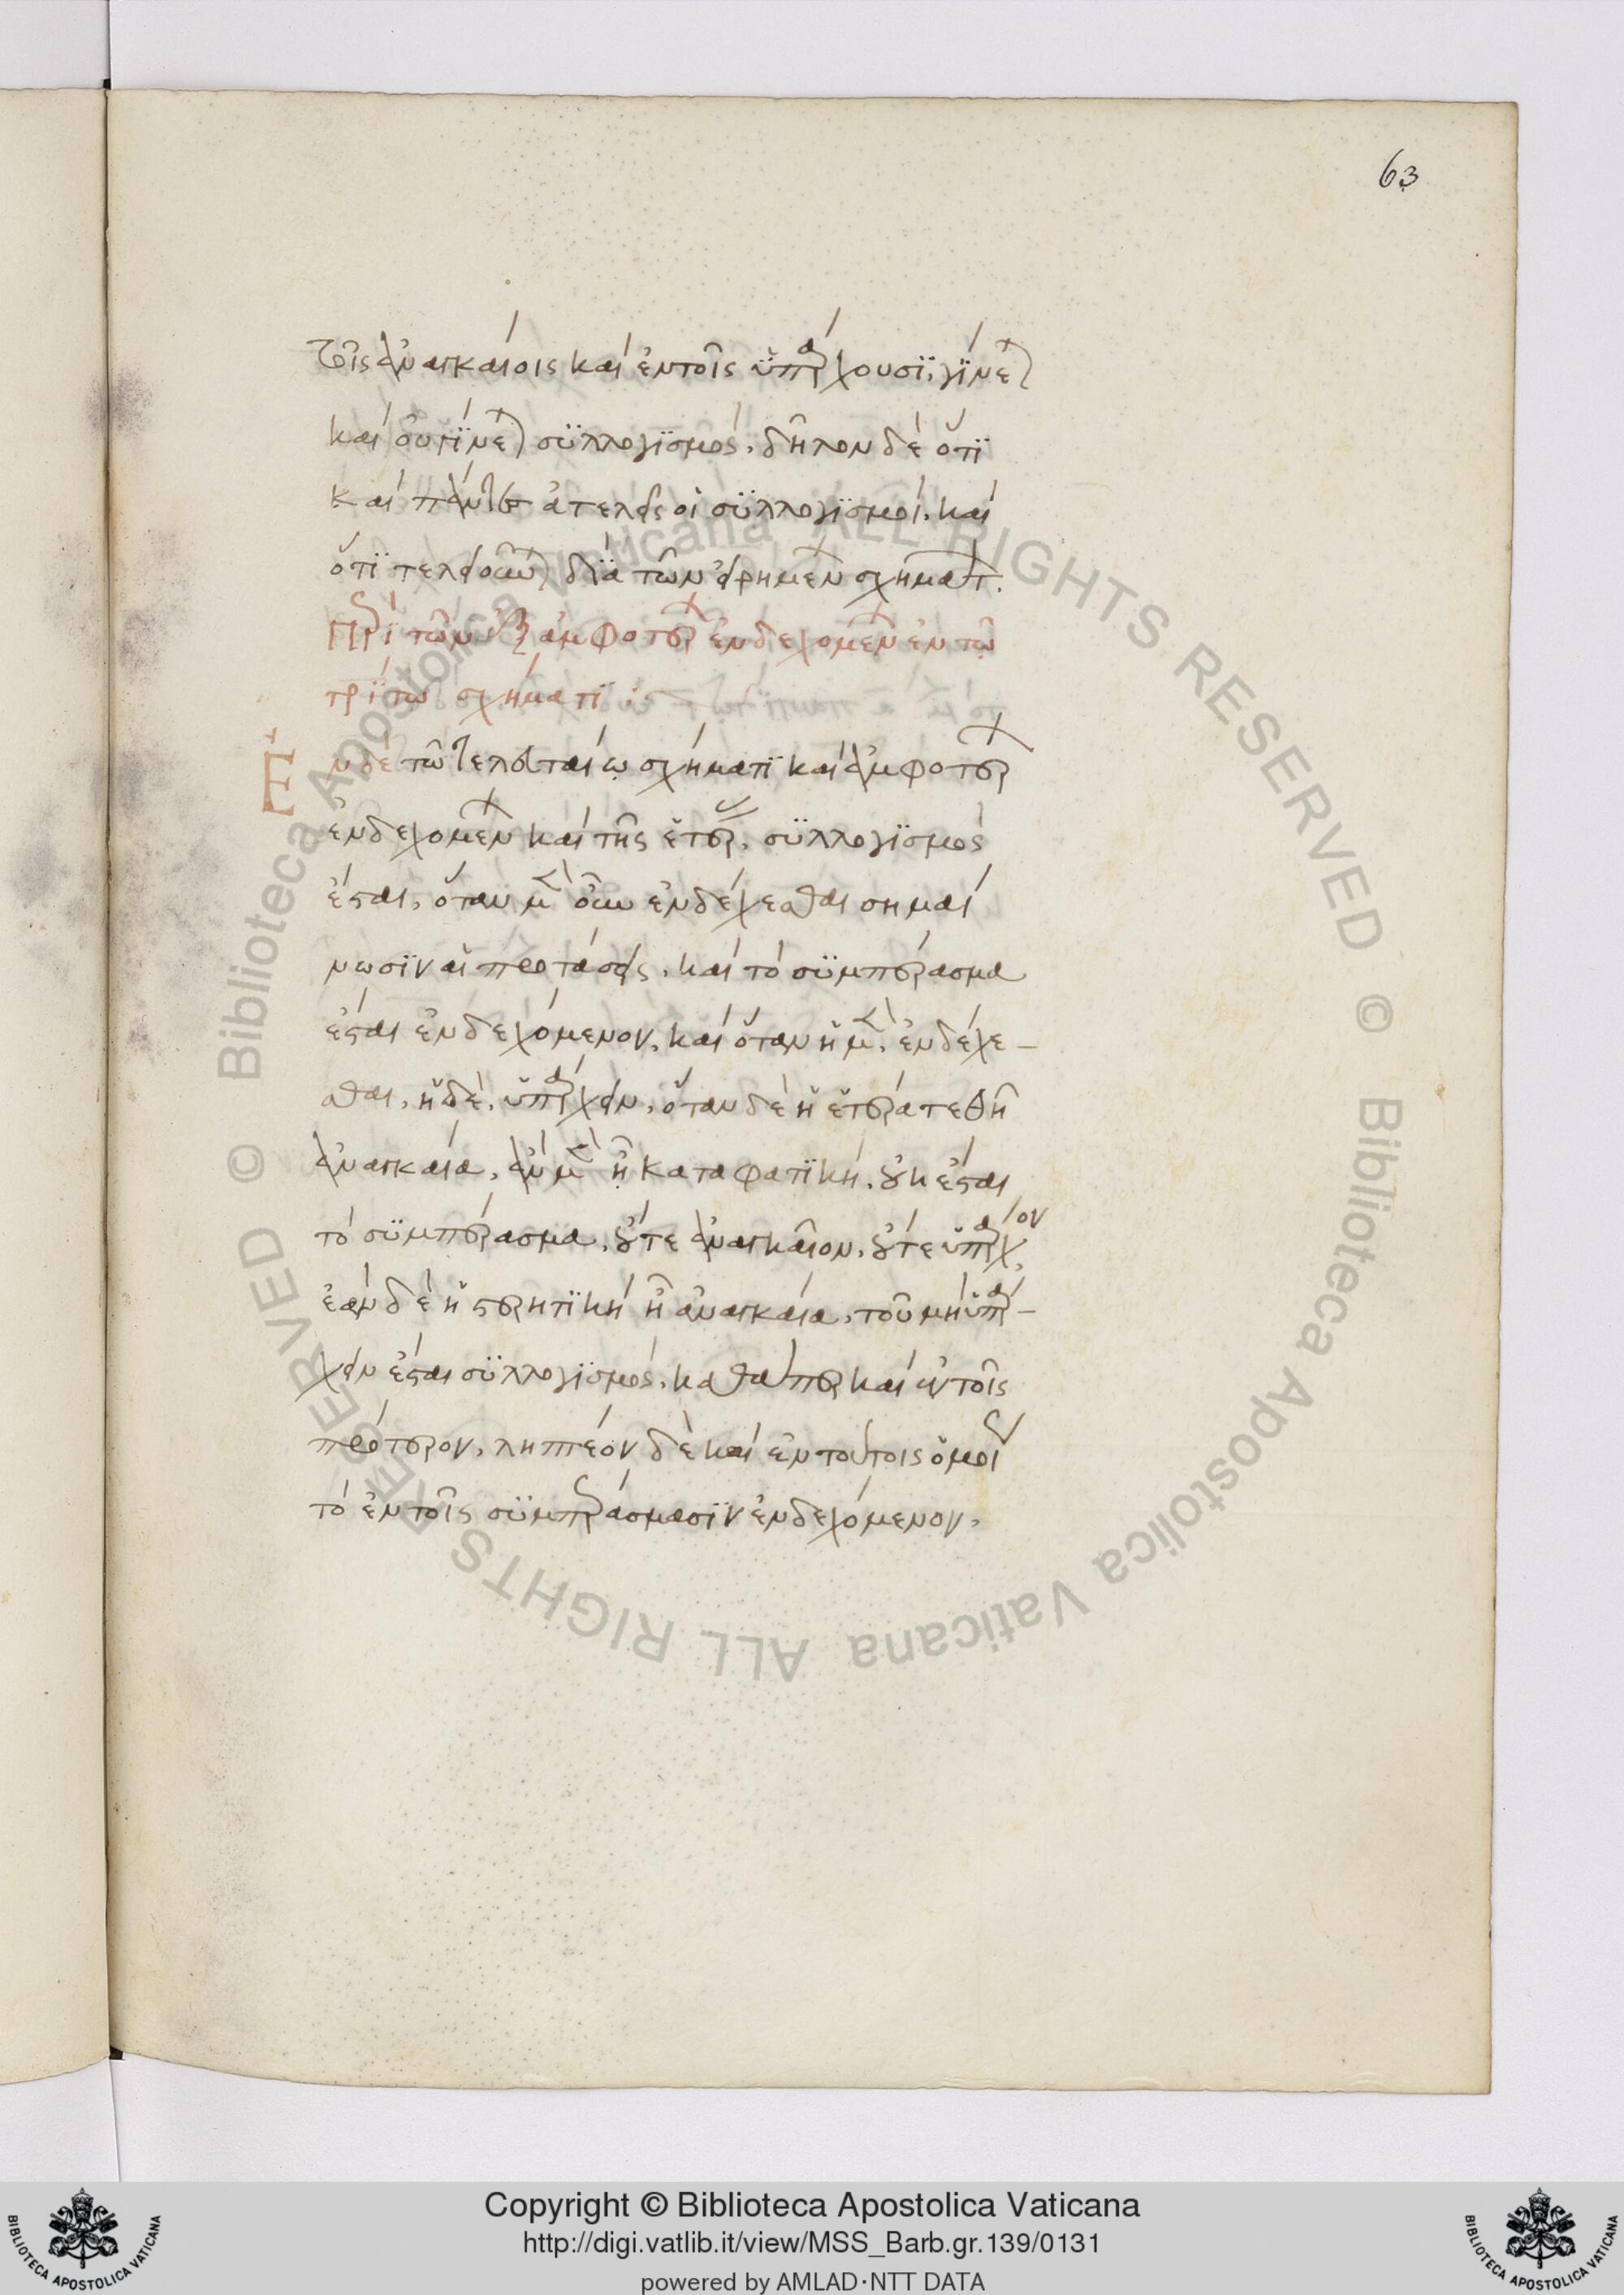 63
τοῖς ἀναγκαίοις καὶ ἐν τοῖς ὑπάρχουσϊ, γίνεται
καὶ οὐ γίνεται συλλογισμός. δῆλον δὲ ὅτι
καὶ πάντες ἀτελεῖς οἱ συλλογισμοί. καὶ
ὅτι τελειοῦνται διὰ τῶν εἰρημένων σχημάτων.
Περὶ τῶν ἐξ ἀμφοτέρων ἐνδεχομένων ἐν τῶ
τρίτω σχήματι :
Ἐν δὲ τῶ τελευταίω σχήματι καὶ ἀμφοτέρων
ἐνδεχομένων καὶ τῆς ἑτέρας, συλλογισμὸς
ἔσται. ὅταν μὲν οὖν ἐνδέχεσθαι σημαί
νωσιν αἱ προτάσεις, καὶ τὸ συμπέρασμα
ἔσται ἐνδεχόμενον. καὶ ὅταν ἡ μὲν, ἐνδέχε-
σθαι, ἡ δὲ, ὑπάρχειν. ὅταν δὲ ἡ ἑτέρα τεθῆ
ἀναγκαία, ἐὰν μὲν ῇ καταφατικὴ, οὐκ ἔσται
τὸ συμπέρασμα, οὔτε ἀναγκαῖον, οὔτε ὑπάρχον.
ἐὰν δὲ ἡ στερητικὴ ῇ ἀναγκαία, τοῦ μὴ ὑπάρ-
χειν ἔσται συλλογισμός. καθάπερ καὶ ἐν τοῖς
πρότερον. ληπτέον δὲ καὶ ἐν τούτοις ὁμοίως
τὸ ἐν τοῖς συμπεράσμασιν ἐνδεχόμενον.
© Biblioteca Apostolica Vaticana ALL RIGHTS RESERVED © Biblioteca Apostolica Vaticana ALL RIGHTS RESERVED
Copyright © Biblioteca Apostolica Vaticana
http://digi.vatlib.it/view/MSS_Barb.gr.139/0131
powered by AMLAD·NTT DATA
BIBLIOTECA APOSTOLICA VATICANA
BIBLIOTECA APOSTOLICA VATICANA